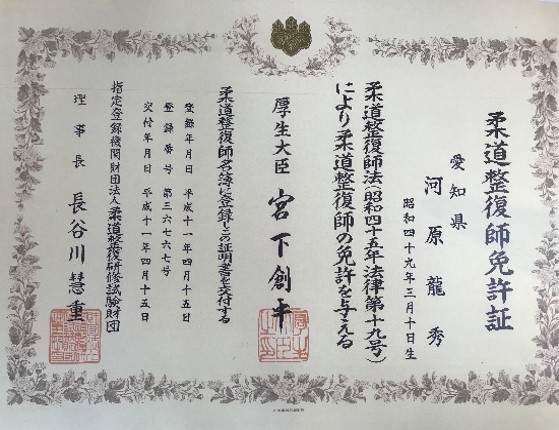 柔道整復師免許証
愛知県
河原龍秀
昭和四十九年三月十日生
柔道整復師法(昭和四十五年法律第十九号)
により柔道整復師の免許を与える
厚生大臣 宮下創平
柔道整復師名簿に登録しこの証明書を交付する
登録年月日 平成十一年四月十五日
登録番号 第三六七六七号
交付年月日 平成十一年四月十五日
指定登録機関財団法人柔道整復研修試験財団
理事長 長谷川慧重